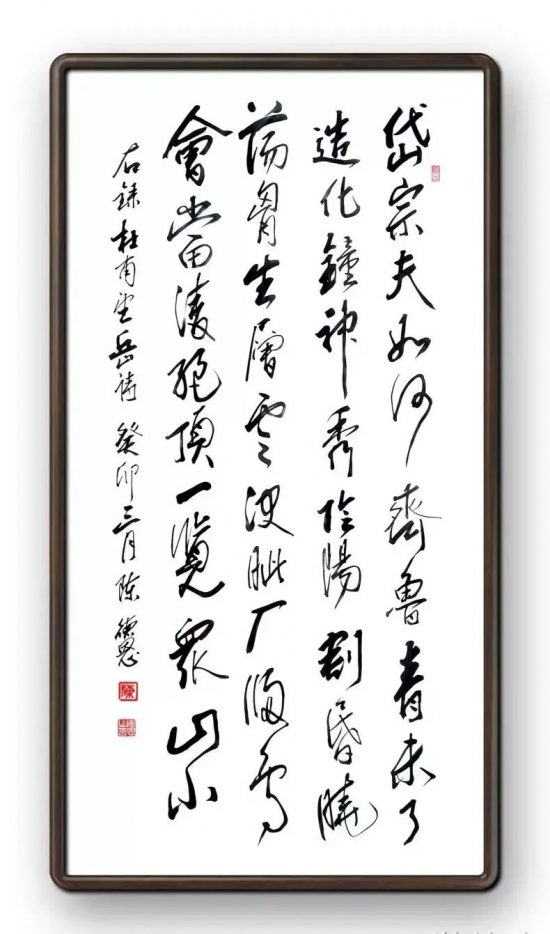 岱宗夫如何齊魯青未了
造化鐘神秀陰陽割昏曉
蕩胷生層雲決眦入歸鳥
會當凌絕頂一覽眾山小
右錄杜甫望岳詩癸卯三月陳德
陳